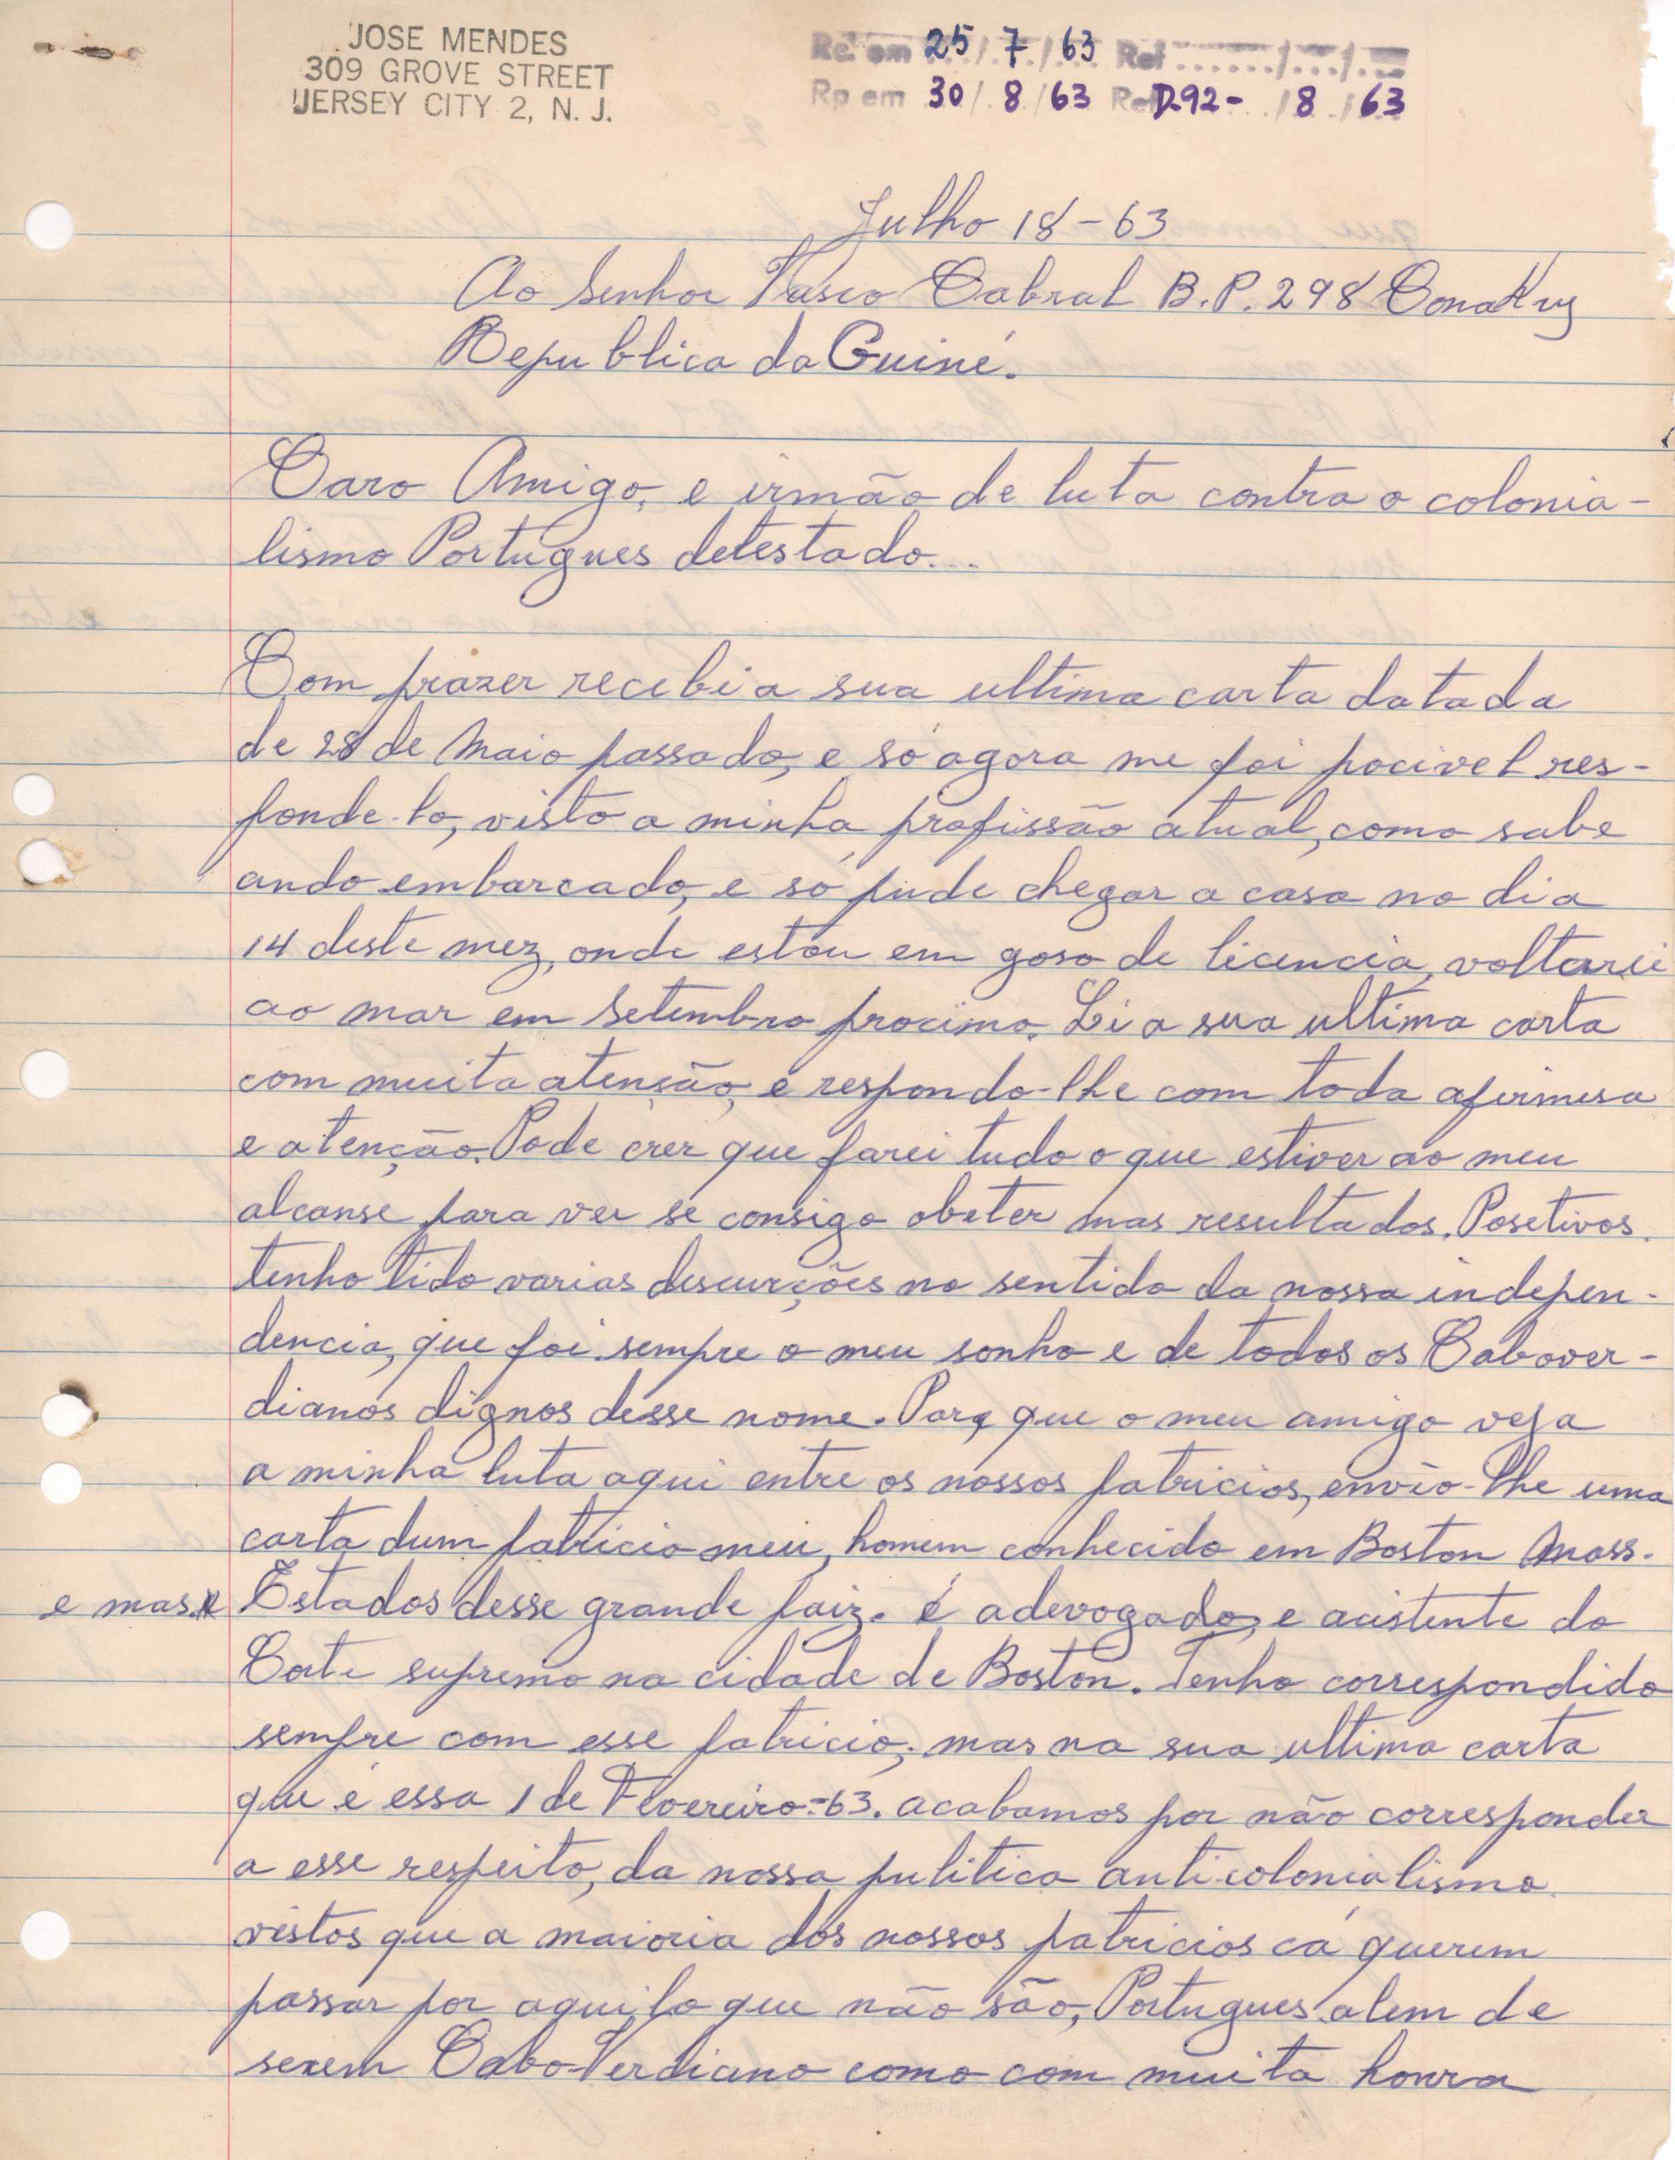 JOSE MENDES
309 GROVE STREET
JERSEY CITY 2, N. J.
Re. em 25 / 7 / 63 Ref ....../.../...
Rp em 30 / 8 / 63 Ref D.92- / 8 / 63
Julho 18-63
Ao Senhor Vasco Cabral B.P. 298 Conakry
Republica da Guiné.
Caro Amigo, e irmão de luta contra o colonia-
lismo Portugues detestado...
Com prazer recebi a sua ultima carta datada
de 28 de Maio passado, e só agora me foi pocivel res-
ponde-lo, visto a minha profissão atual, como sabe
ando embarcado, e só pude chegar a casa no dia
14 deste mez, onde estou em goso de licencia, voltarei
ao mar em Setembro procimo. Li a sua ultima carta
com muita atenção, e respondo-lhe com toda afirmesa
e atenção. Pode crer que farei tudo o que estiver ao meu
alcanse para ver se consigo obeter mas resultados. Posetivos.
tenho tido varias descurções no sentido da nossa indepen-
dencia, que foi sempre o meu sonho e de todos os Cabover-
dianos dignos desse nome. Para que o meu amigo veja
a minha luta aqui entre os nossos patricios, envio-lhe uma
carta dum patricio meu, homem conhecido em Boston Mass.
e mas Estados desse grande paiz. é adevogado, e acistente do
Corte supremo na cidade de Boston. Tenho correspondido
sempre com esse patricio, mas na sua ultima carta
que é essa 1 de Fevereiro-63. acabamos por não corresponder
a esse respeito, da nossa pulitica anti-colonialismo
vistos que a maioria dos nossos patricios cá querem
passar por aquilo que não são, Portugues. alem de
serem Cabo-Verdiano como com muita honra